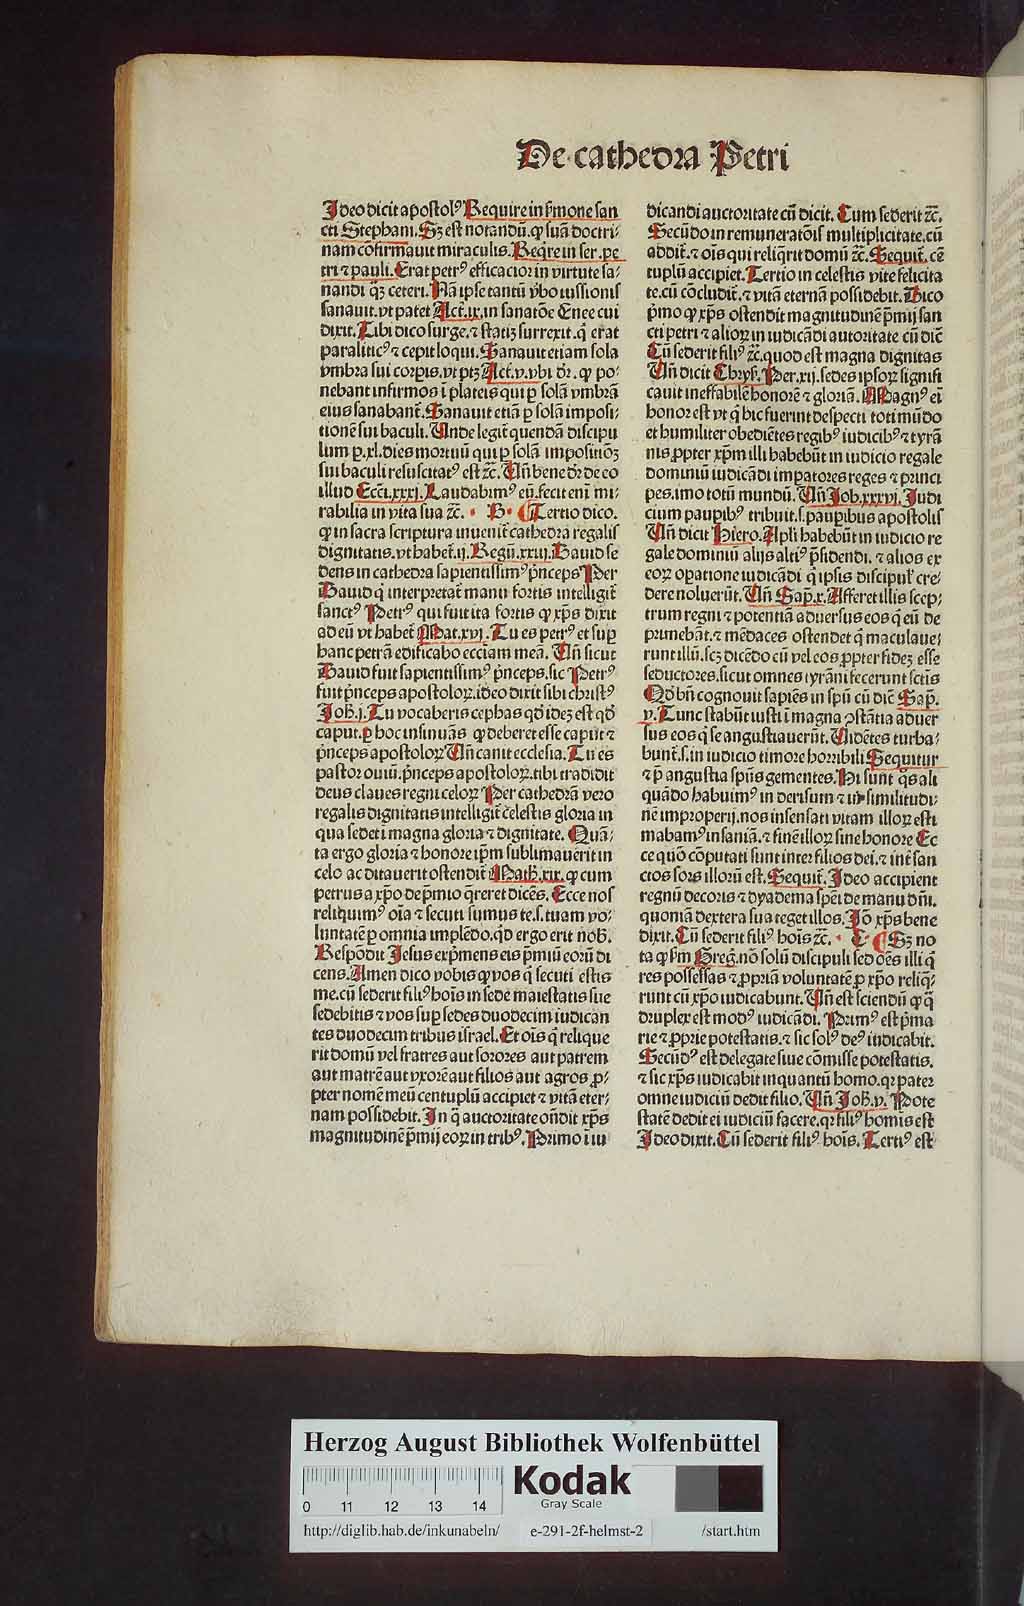 De cathedra Petri
Ideo dicit apostolꝰ Require in ẜmone san
cti Stephani. Sꝫ est notandū. ꝙ suā doctri⸗
nam cōfirmauit miraculis. Reqͥre in ser. pe
tri ⁊ pauli. Erat petrꝰ efficacior in virtute sa⸗
nandi qͣꝫ ceteri. Nā ipse tantū v̓bo iussionis
sanauit. vt patet Act̄. ix. in sanatōe Enee cui
dixit. Tibi dico surge. ⁊ statiꝫ surrexit. qͥ erat
paraliticꝰ ⁊ cepit loqui. Sanauit etiam sola
vmbra sui corpis. vt ptꝫ Act̄. v. vbi dr̄. ꝙ po⸗
nebant infirmos ī plateis qui ꝑ solā vmbrā
eius sanabant̄. Sanauit etiā ꝑ solā imposi⸗
tionē sui baculi. Unde legit̄ quendā discipu
lum ꝑ. xl. dies mortuū qui ꝑ solā impositioꝫ
sui baculi resuscitatꝰ est ⁊c̄. Un̄ bene dr̄ de eo
illud Ecci. xxxj. Laudabimꝰ eū. fecit eni mi⸗
rabilia in vita sua ⁊c̄. B. Tertio dico.
ꝙ in sacra scriptura inuenit̄ cathedra regalis
dignitatis. vt habet̄. ij. Regū. xxiij. Dauid se
dens in cathedra sapientissimꝰ p̄nceps Per
Dauid qͥ interpretat̄ manu fortis intelligit̄
sanctꝰ Petrꝰ qui fuit ita fortis ꝙ xp̄s dixit
ad eū vt habet̄ Mat. xvj. Tu es petrꝰ et suꝑ
hanc petrā edificabo ecciam meā. Un̄ sicut
Dauid fuit sapientissimꝰ p̄nceps. sic Petrꝰ
fuit p̄nceps apostoloꝝ. ideo dixit sibi christꝰ
Joh̄. j. Tu vocaberis cephas qd̓ ideꝫ est qd̓
caput. ꝑ hoc insinuās ꝙ deberet esse caput ⁊
p̄nceps apostoloꝝ Un̄ canit ecclesia. Tu es
pastor ouiū. p̄nceps apostoloꝝ. tibi tradidit
deus claues regni celoꝝ Per cathedrā vero
regalis dignitatis intelligit̄ celestis gloria in
qua sedet ī magna gloria ⁊ dignitate. Quā⸗
ta ergo gloria ⁊ honore ip̄m sublimauerit in
celo ac ditauerit ostendit̄ Math̄. xix. ꝙ cum
petrus a xp̄o de p̄mio qͥreret dicēs. Ecce nos
reliquimꝰ oīa ⁊ secuti sumus te. s. tuam vo⸗
luntatē ꝑ omnia implēdo. qd̓ ergo erit nob̄.
Respōdit Jesus exp̄mens eis p̄miū eorū di
cens. Amen dico vobis ꝙ vos qͥ secuti estis
me. cū sederit filiꝰ hoīs in sede maiestatis sue
sedebitis ⁊ vos suꝑ sedes duodecim iudican
tes duodecim tribus israel. Et oīs qͥ relique
rit domū vel fratres aut sorores aut patrem
aut matrē aut vxorē aut filios aut agros ꝓ⸗
pter nomē meū centuplū accipiet ⁊ vitā eter⸗
nam possidebit. In qͣ auctoritate on̄dit xp̄s
magnitudinē p̄mij eoꝝ in tribꝰ. Primo i iu
dicandi auctoritate cū dicit. Cum sederit ⁊c̄.
Secūdo in remuneratōis multiplicitate. cū
addit̄. ⁊ oīs qui reliqͥrit domū ⁊c̄. Sequit̄. cē
tuplū accipiet. Tertio in celestis vite felicita
te. cū cōcludit̄. ⁊ vitā eternā possidebit. Dico
pͥmo ꝙ xp̄s ostendit magnitudinē p̄mij san
cti petri ⁊ alioꝝ in iudicādi autoritate cū dic̄
Cū sederit filiꝰ ⁊c̄. quod est magna dignitas
Un̄ dicit Chrys̓. Per. xij. sedes ipsoꝝ signifi
cauit ineffabilē honorē ⁊ gloriā. Magnꝰ ei
honor est vt qͥ hic fuerint despecti toti mūdo
et humiliter obediētes regibꝰ iudicibꝰ ⁊ tyrā
nis ꝓpter xp̄m illi habebūt in iudicio regale
dominiū iudicādi imꝑatores reges ⁊ princi
pes. imo totū mundū. Un̄ Job. xxxvj. Judi
cium pauꝑibꝰ tribuit. s. pauꝑibus apostolis
Un̄ dicit Hiero. Apl̓i habebūt in iudicio re
gale dominiū alijs altiꝰ p̄sidendi. ⁊ alios ex
eoꝝ oꝑatione iudicādi qͥ ipsis discipul̓ cre⸗
dere noluerūt. Un̄ Sap̄. x. Afferet illis scep⸗
trum regni ⁊ potentiā aduersus eos qͥ eū de
primebāt. ⁊ mēdaces ostendet qͥ maculaue⸗
runt illū. scꝫ dicēdo eū vel eos ꝓpter fideꝫ esse
seductores. sicut omnes tyrāni fecerunt sctīs
Qd̓ bn̄ cognouit sapiēs in spū cū dic̄ Sap̄.
v. Tunc stabūt iusti ī magna ꝯstātia aduer
sus eos qͥ se angustiauerūt. Uidētes turba⸗
bunt̄. s. in iudicio timore horribili Sequitur
⁊ p̄ angustia spūs gementes. Hi sunt qͦs ali
quādo habuimꝰ in derisum ⁊ in similitudi⸗
nē improperij. nos insensati vitam illoꝝ esti
mabamꝰ insaniā. ⁊ finē illoꝝ sine honore Ec
ce quō cōputati sunt inter filios dei. ⁊ int̄ san
ctos sors illorū est. Sequit̄. Ideo accipient
regnū decoris ⁊ dyadema spēi de manu dn̄i.
quoniā dextera sua teget illos. Jō xp̄s bene
dixit. Cū sederit filiꝰ hoīs ⁊c̄. C. Sꝫ no
ta ꝙ ẜm Greḡ. nō solū discipuli sed oēs illi qͥ
res possessas ⁊ ꝓpriā voluntatē ꝓ xp̄o reliqͥ⸗
runt cū xp̄o iudicabunt. Un̄ est sciendū ꝙ qͣ
druplex est modꝰ iudicādi. Primꝰ est pͥma
rie ⁊ ꝓprie potestatis. ⁊ sic solꝰ deꝰ iudicabit.
Secūdꝰ est delegate siue cōmisse potestatis.
⁊ sic xp̄s iudicabit inquantū homo. qꝛ pater
omne iudiciū dedit filio. Un̄ Joh̄. v. Pote
statē dedit ei iudiciū facere. qꝛ filiꝰ homīs est
Ideo dixit. Cū sederit filiꝰ hoīs. Tertiꝰ est
Herzog August Bibliothek Wolfenbüttel
Kodak
Gray Scale
0 11 12 13 14
http://diglib.hab.de/inkunabeln/ e-291-2f-helmst-2 /start.htm